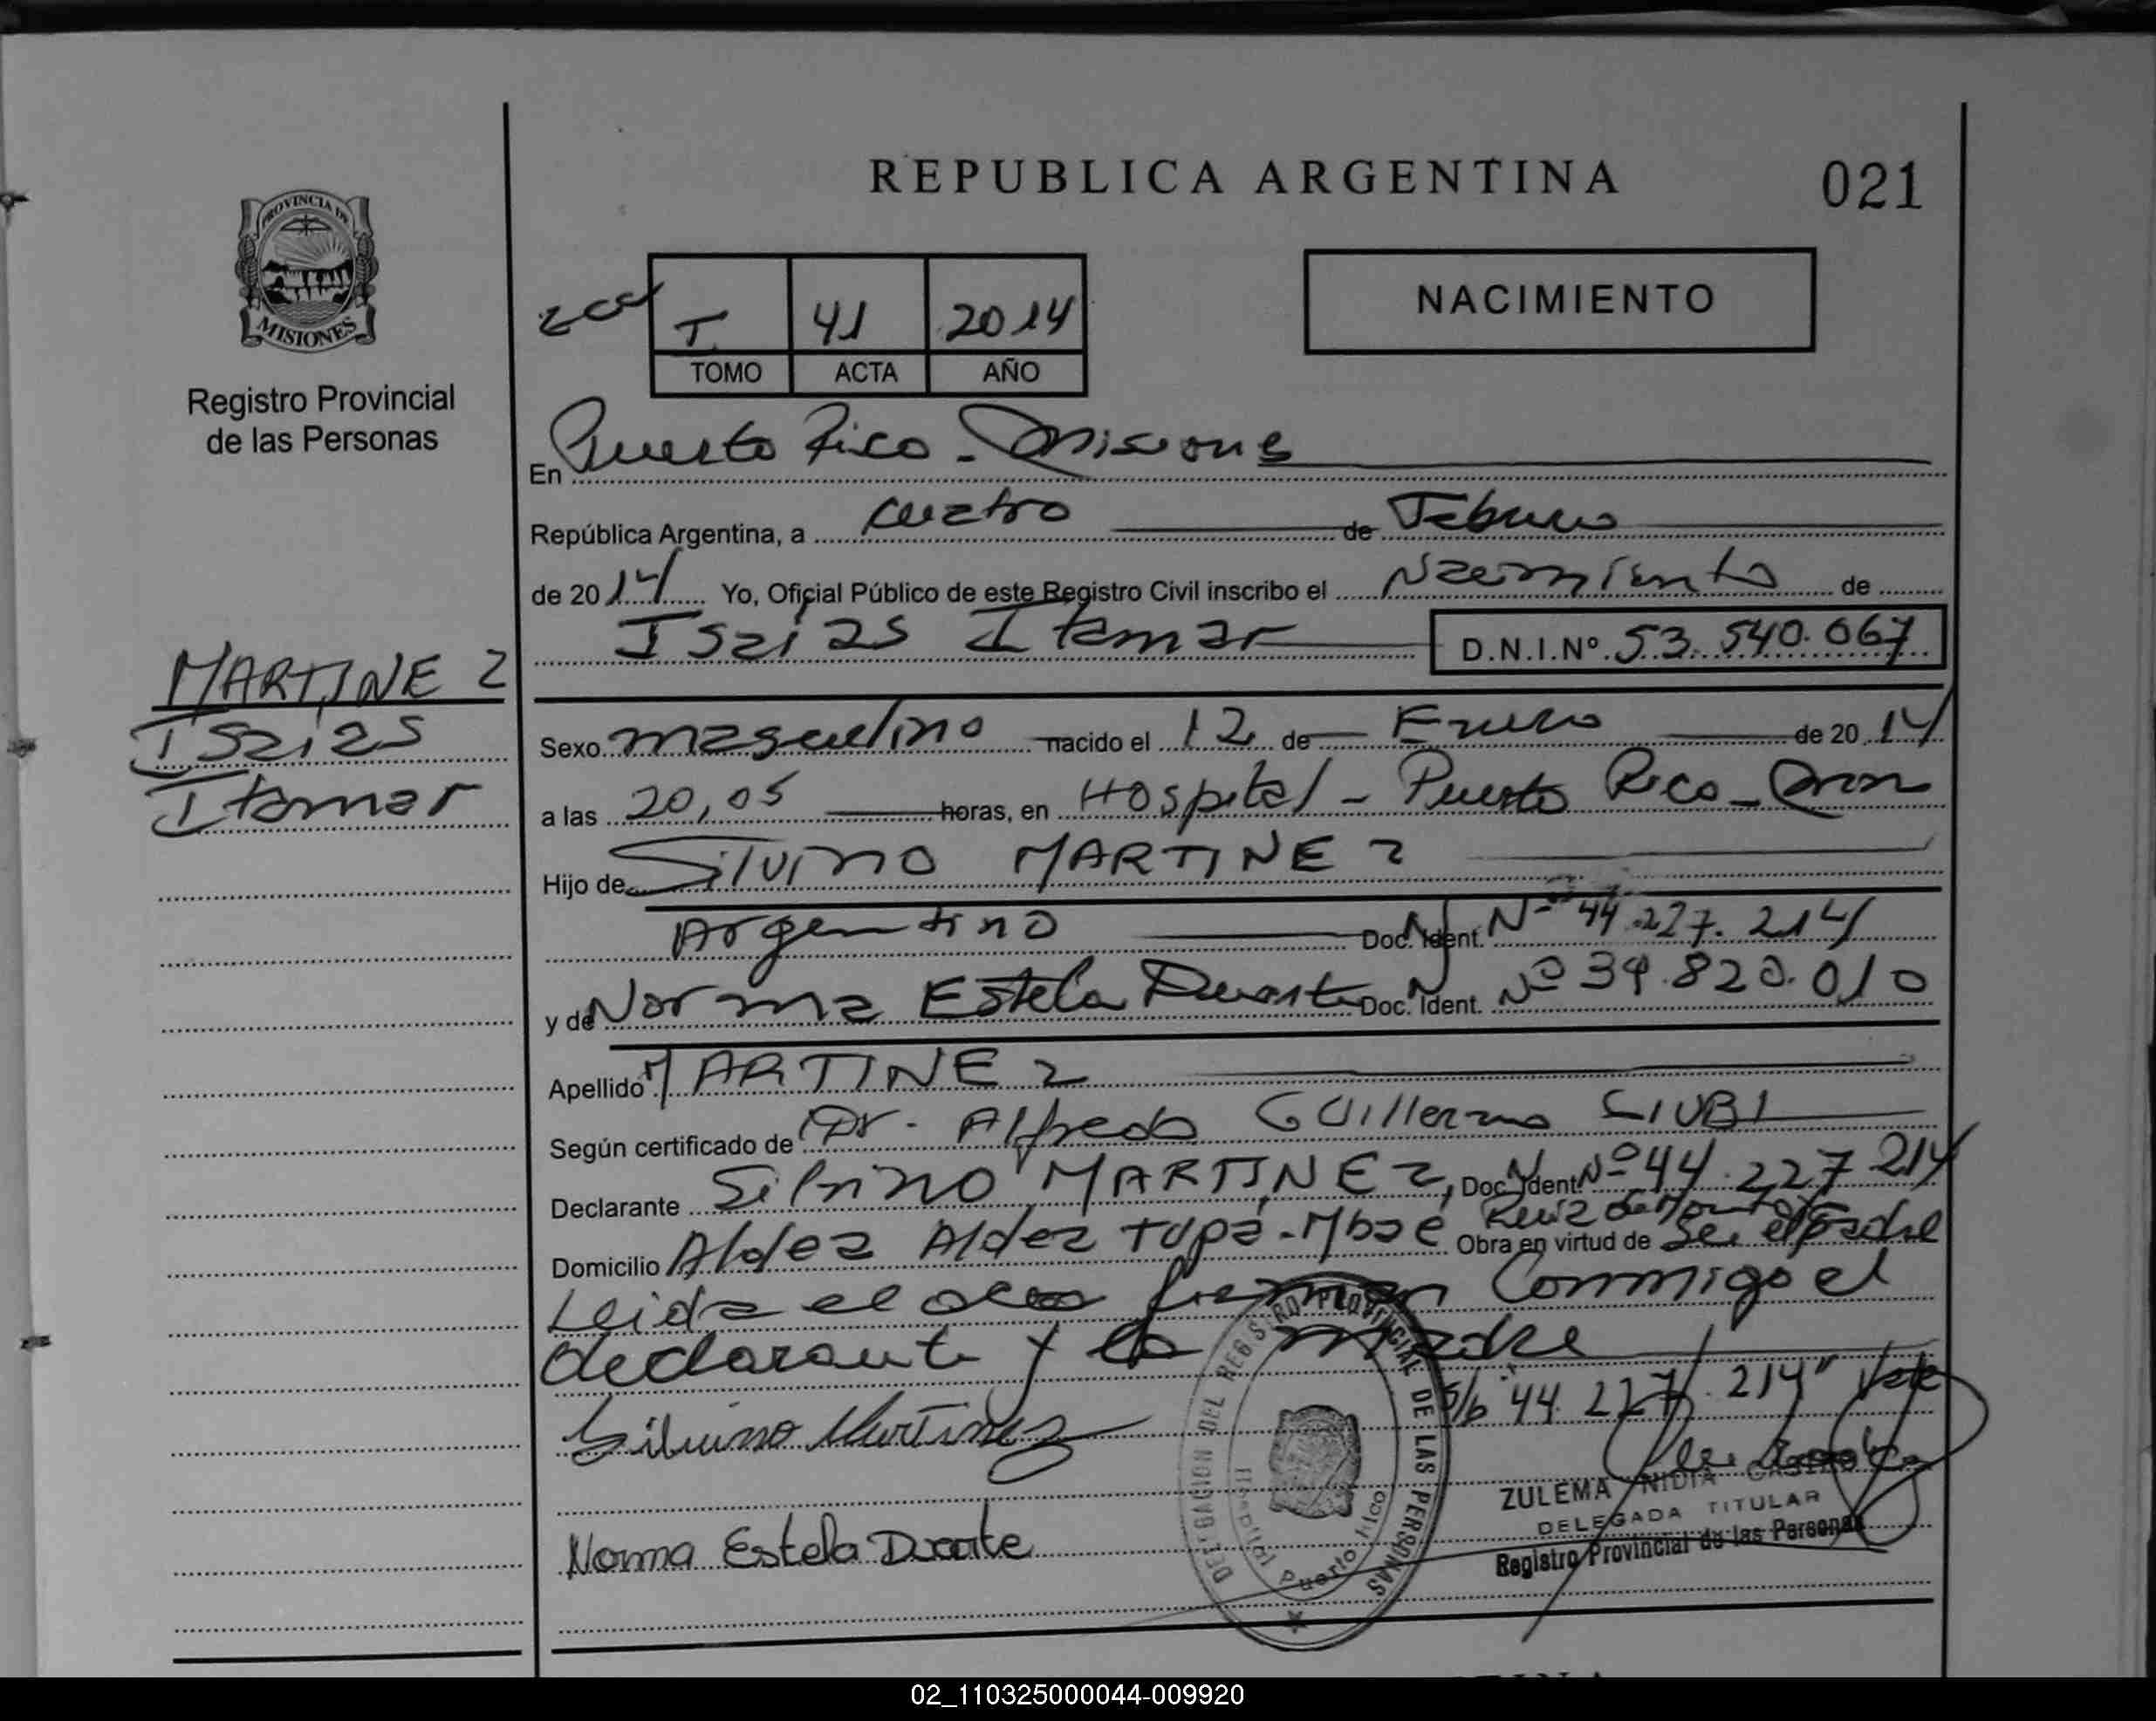 REPUBLICA ARGENTINA
021
PROVINCIA DE
MISIONES
Registro Provincial
de las Personas
T 41 2014
TOMO ACTA AÑO
NACIMIENTO
En Puerto Rico - Misiones
República Argentina, a cuatro de Febrero
de 2014 Yo, Oficial Público de este Registro Civil inscribo el Nacimiento de
Isaias Itamar D.N.I.Nº 53.540.067
MARTINEZ
Isaias
Itamar
Sexo masculino nacido el 12 de Enero de 2014
a las 20,05 horas, en Hospital - Puerto Rico -
Hijo de Silvino MARTINEZ
Argentino Doc. Ident. Nº 44.227.214
y de Norma Estela Duarte Doc. Ident. Nº 39.820.010
Apellido MARTINEZ
Según certificado de Dr. Alfredo Guillermo CIUBI
Declarante Silvino MARTINEZ, Doc. Ident. Nº 44.227.214
Ruiz de Montoya
Domicilio Aldea Tupa-Mbaé Obra en virtud de Ser el padre
Leida el acta firman Conmigo el
declarante y la madre
S/b "44.227.214" Vale
Silvino Martinez
Norma Estela Duarte
DELEGACION DEL REGISTRO PROVINCIAL DE LAS PERSONAS
Hospital Puerto Rico
ZULEMA NIDIA CASTRO
DELEGADA TITULAR
Registro Provincial de las Personas
02_110325000044-009920